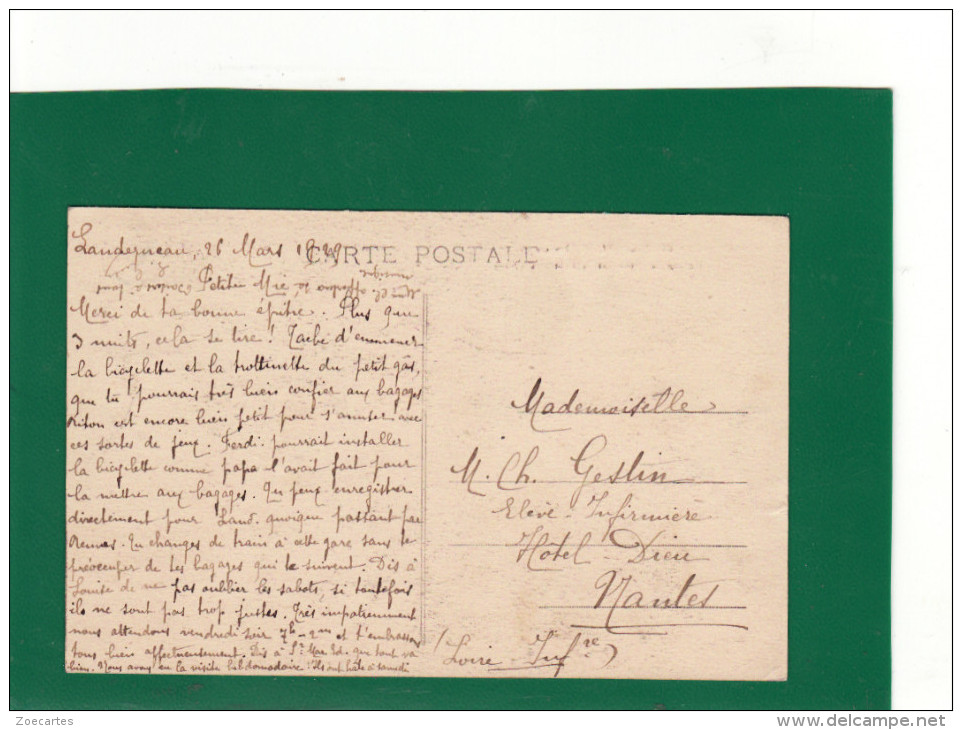 Landerneau, 26 Mars 1929
CARTE POSTALE
Petite Mie,
Merci de ta bonne épitre. Plus que
3 nuits, cela se tire ! Tache d'emmener
la bicyclette et la trottinette du petit gâs,
que tu pourrais très bien confier aux bagages
Riton est encore bien petit pour s'amuser avec
ces sortes de jeux. Ferdi. pourrait installer
la bicyclette comme papa l'avait fait pour
la mettre aux bagages. Tu peux enregistrer
directement pour Land. quoique passant par
Rennes. Tu changes de train à cette gare sans te
préoccuper de tes bagages qui te suivent. Dis à
Louise de ne pas oublier les sabots, si toutefois
ils ne sont pas trop justes. Très impatiemment
nous attendons vendredi soir 7h et t'embrassons
tous bien affectueusement. Dis à que tout va
bien. Nous avons eu la visite hebdomadaire samedi
Mademoiselle
M. Ch. Gestin
Elève-Infirmière
Hôtel-Dieu
Nantes
(Loire-Infre)
Zoecartes
www.delcampe.net